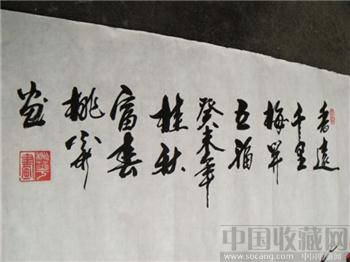 香远
千里
梅开
五福
癸未年
桂秋
富春
桃华
画
中国收藏网
www.socang.com